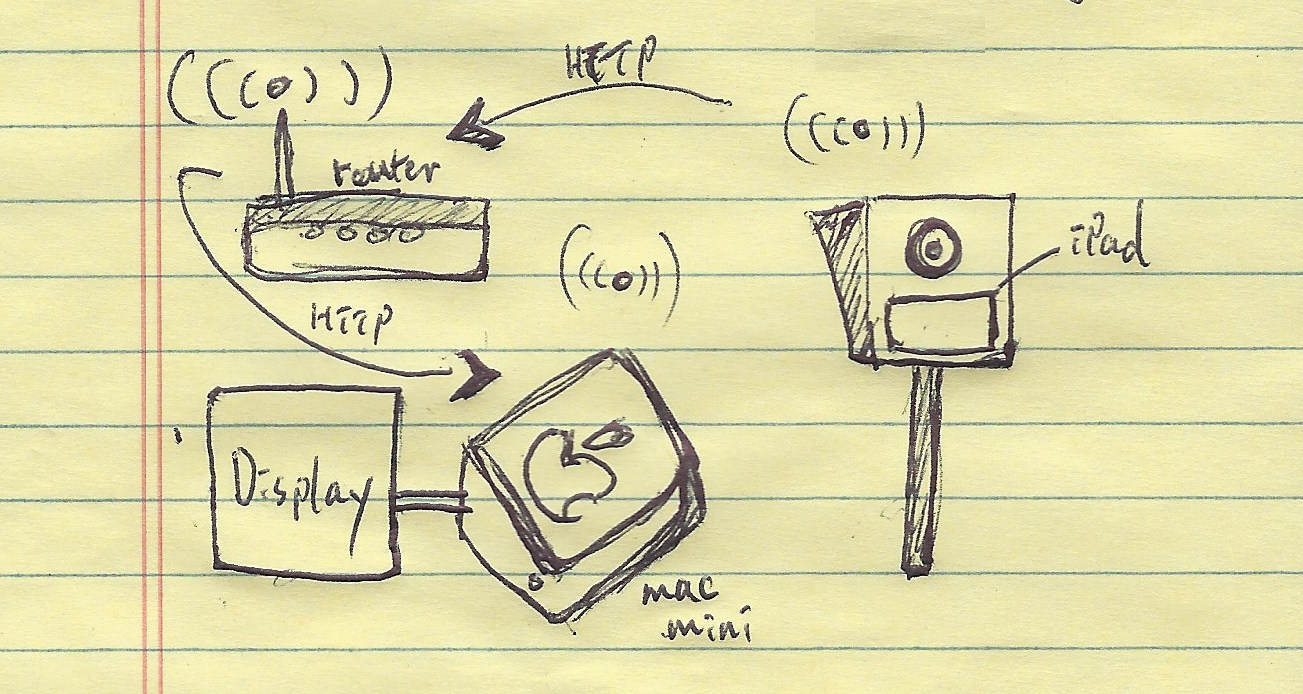 HTTP
router
iPad
HTTP
Display
mac
mini